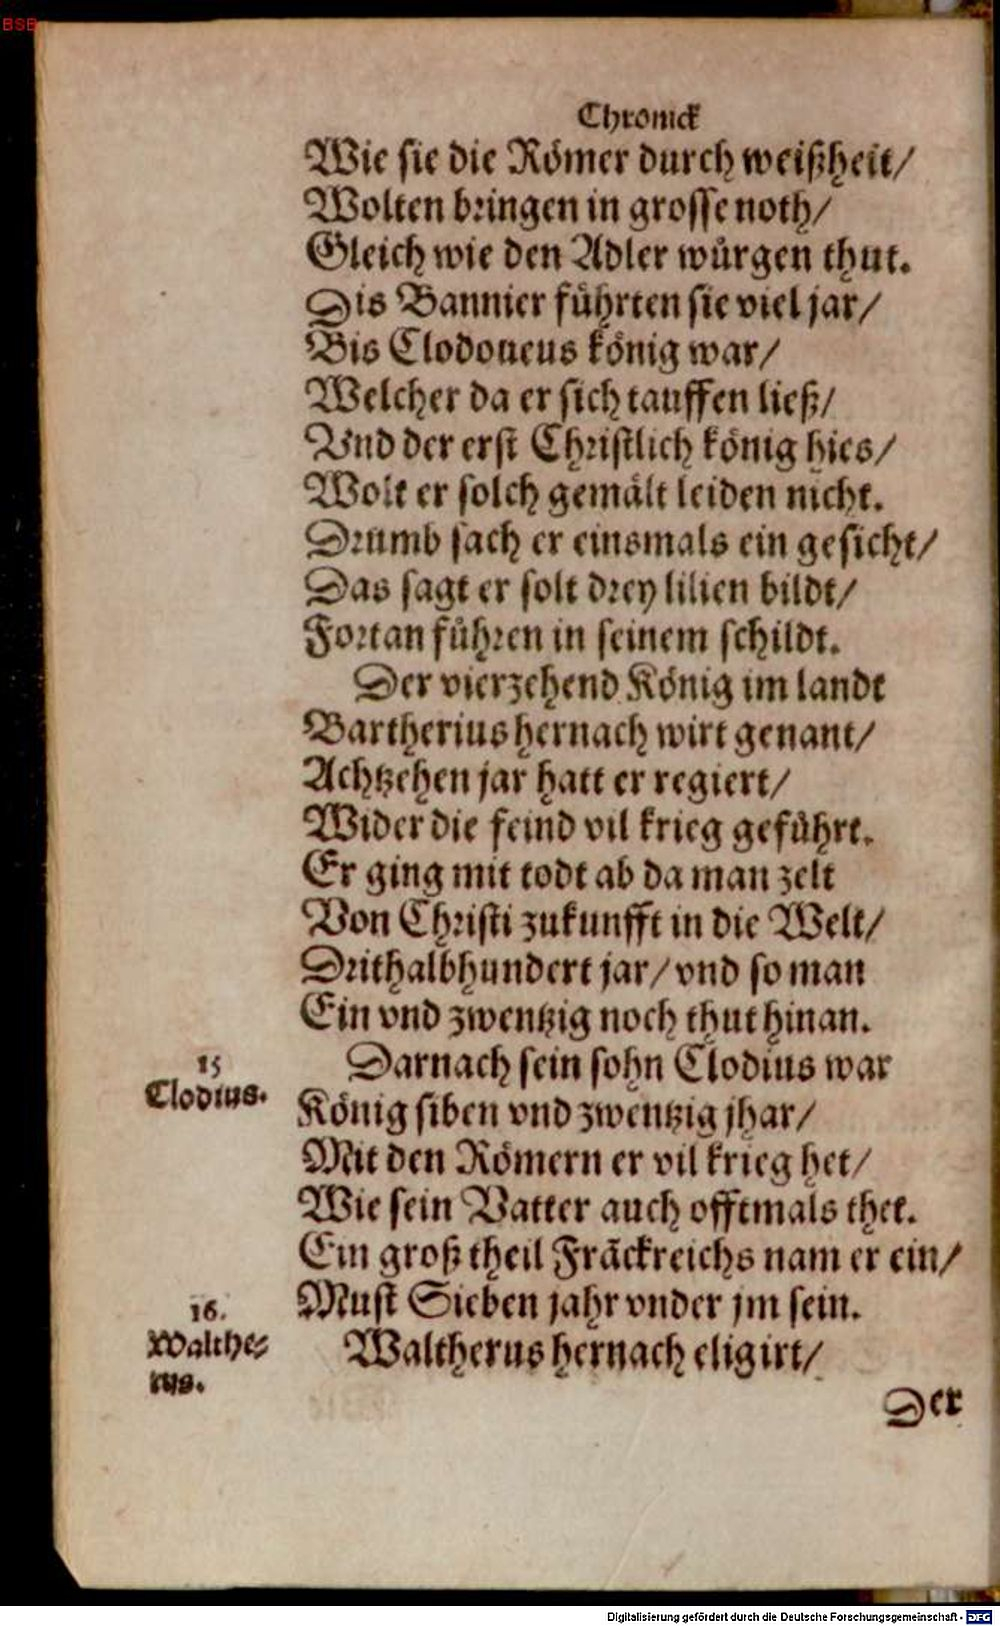 BSB
Chronick
Wie sie die Römer durch weißheit/
Wolten bringen in grosse noth/
Gleich wie den Adler würgen thut.
Dis Bannier führten sie viel jar/
Bis Clodoueus könig war/
Welcher da er sich tauffen ließ/
Vnd der erst Christlich könig hies/
Wolt er solch gemält leiden nicht.
Drumb sach er einsmals ein gesicht/
Das sagt er solt drey lilien bildt/
Fortan führen in seinem schildt.
Der vierzehend König im landt
Bartherius hernach wirt genant/
Achtzehen jar hatt er regiert/
Wider die feind vil krieg geführt.
Er ging mit todt ab da man zelt
Von Christi zukunfft in die Welt/
Drithalbhundert jar/ vnd so man
Ein vnd zwentzig noch thut hinan.
15
Clodius.
Darnach sein sohn Clodius war
König siben vnd zwentzig jhar/
Mit den Römern er vil krieg het/
Wie sein Vatter auch offtmals thet.
Ein groß theil Frãckreichs nam er ein/
Must Sieben jahr vnder jm sein.
16.
Walthe⸗
rus.
Waltherus hernach eligirt/
Der
Digitalisierung gefördert durch die Deutsche Forschungsgemeinschaft - DFG